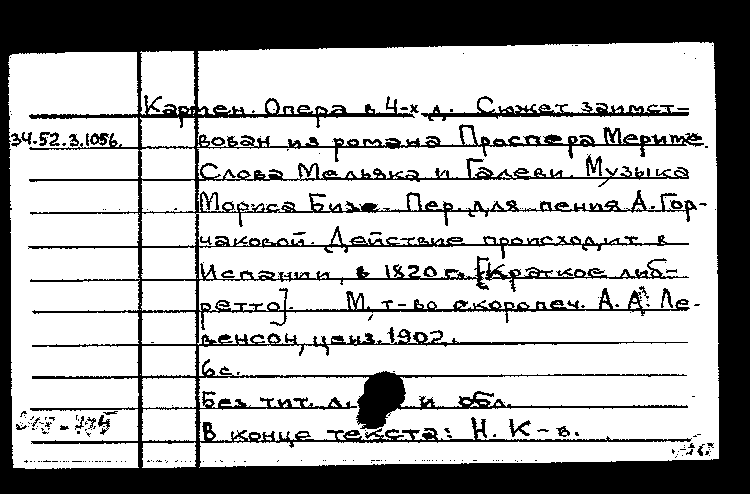 Кармен. Опера в 4-х д. Сюжет заимст-
34.52.3.1056. вован из романа Проспера Мериме.
Слова Мельяка и Галеви. Музыка
Мориса Бизе. Пер. для пения А. Гор-
чаковой. Действие происходит в
Испании, в 1820 г. [Краткое либ-
ретто]. М, т-во скоропеч. А. А. Ле-
венсон, ценз. 1902.
6с.
Без тит. л. и обл.
В конце текста: Н. К-в.